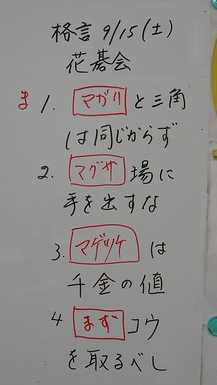 格言 9/15(土)
花碁会
ま 1. マガリ と三角
は同じからず
2. マグサ 場に
手を出すな
3. マゲツケ は
千金の値
4 まず コウ
を取るべし